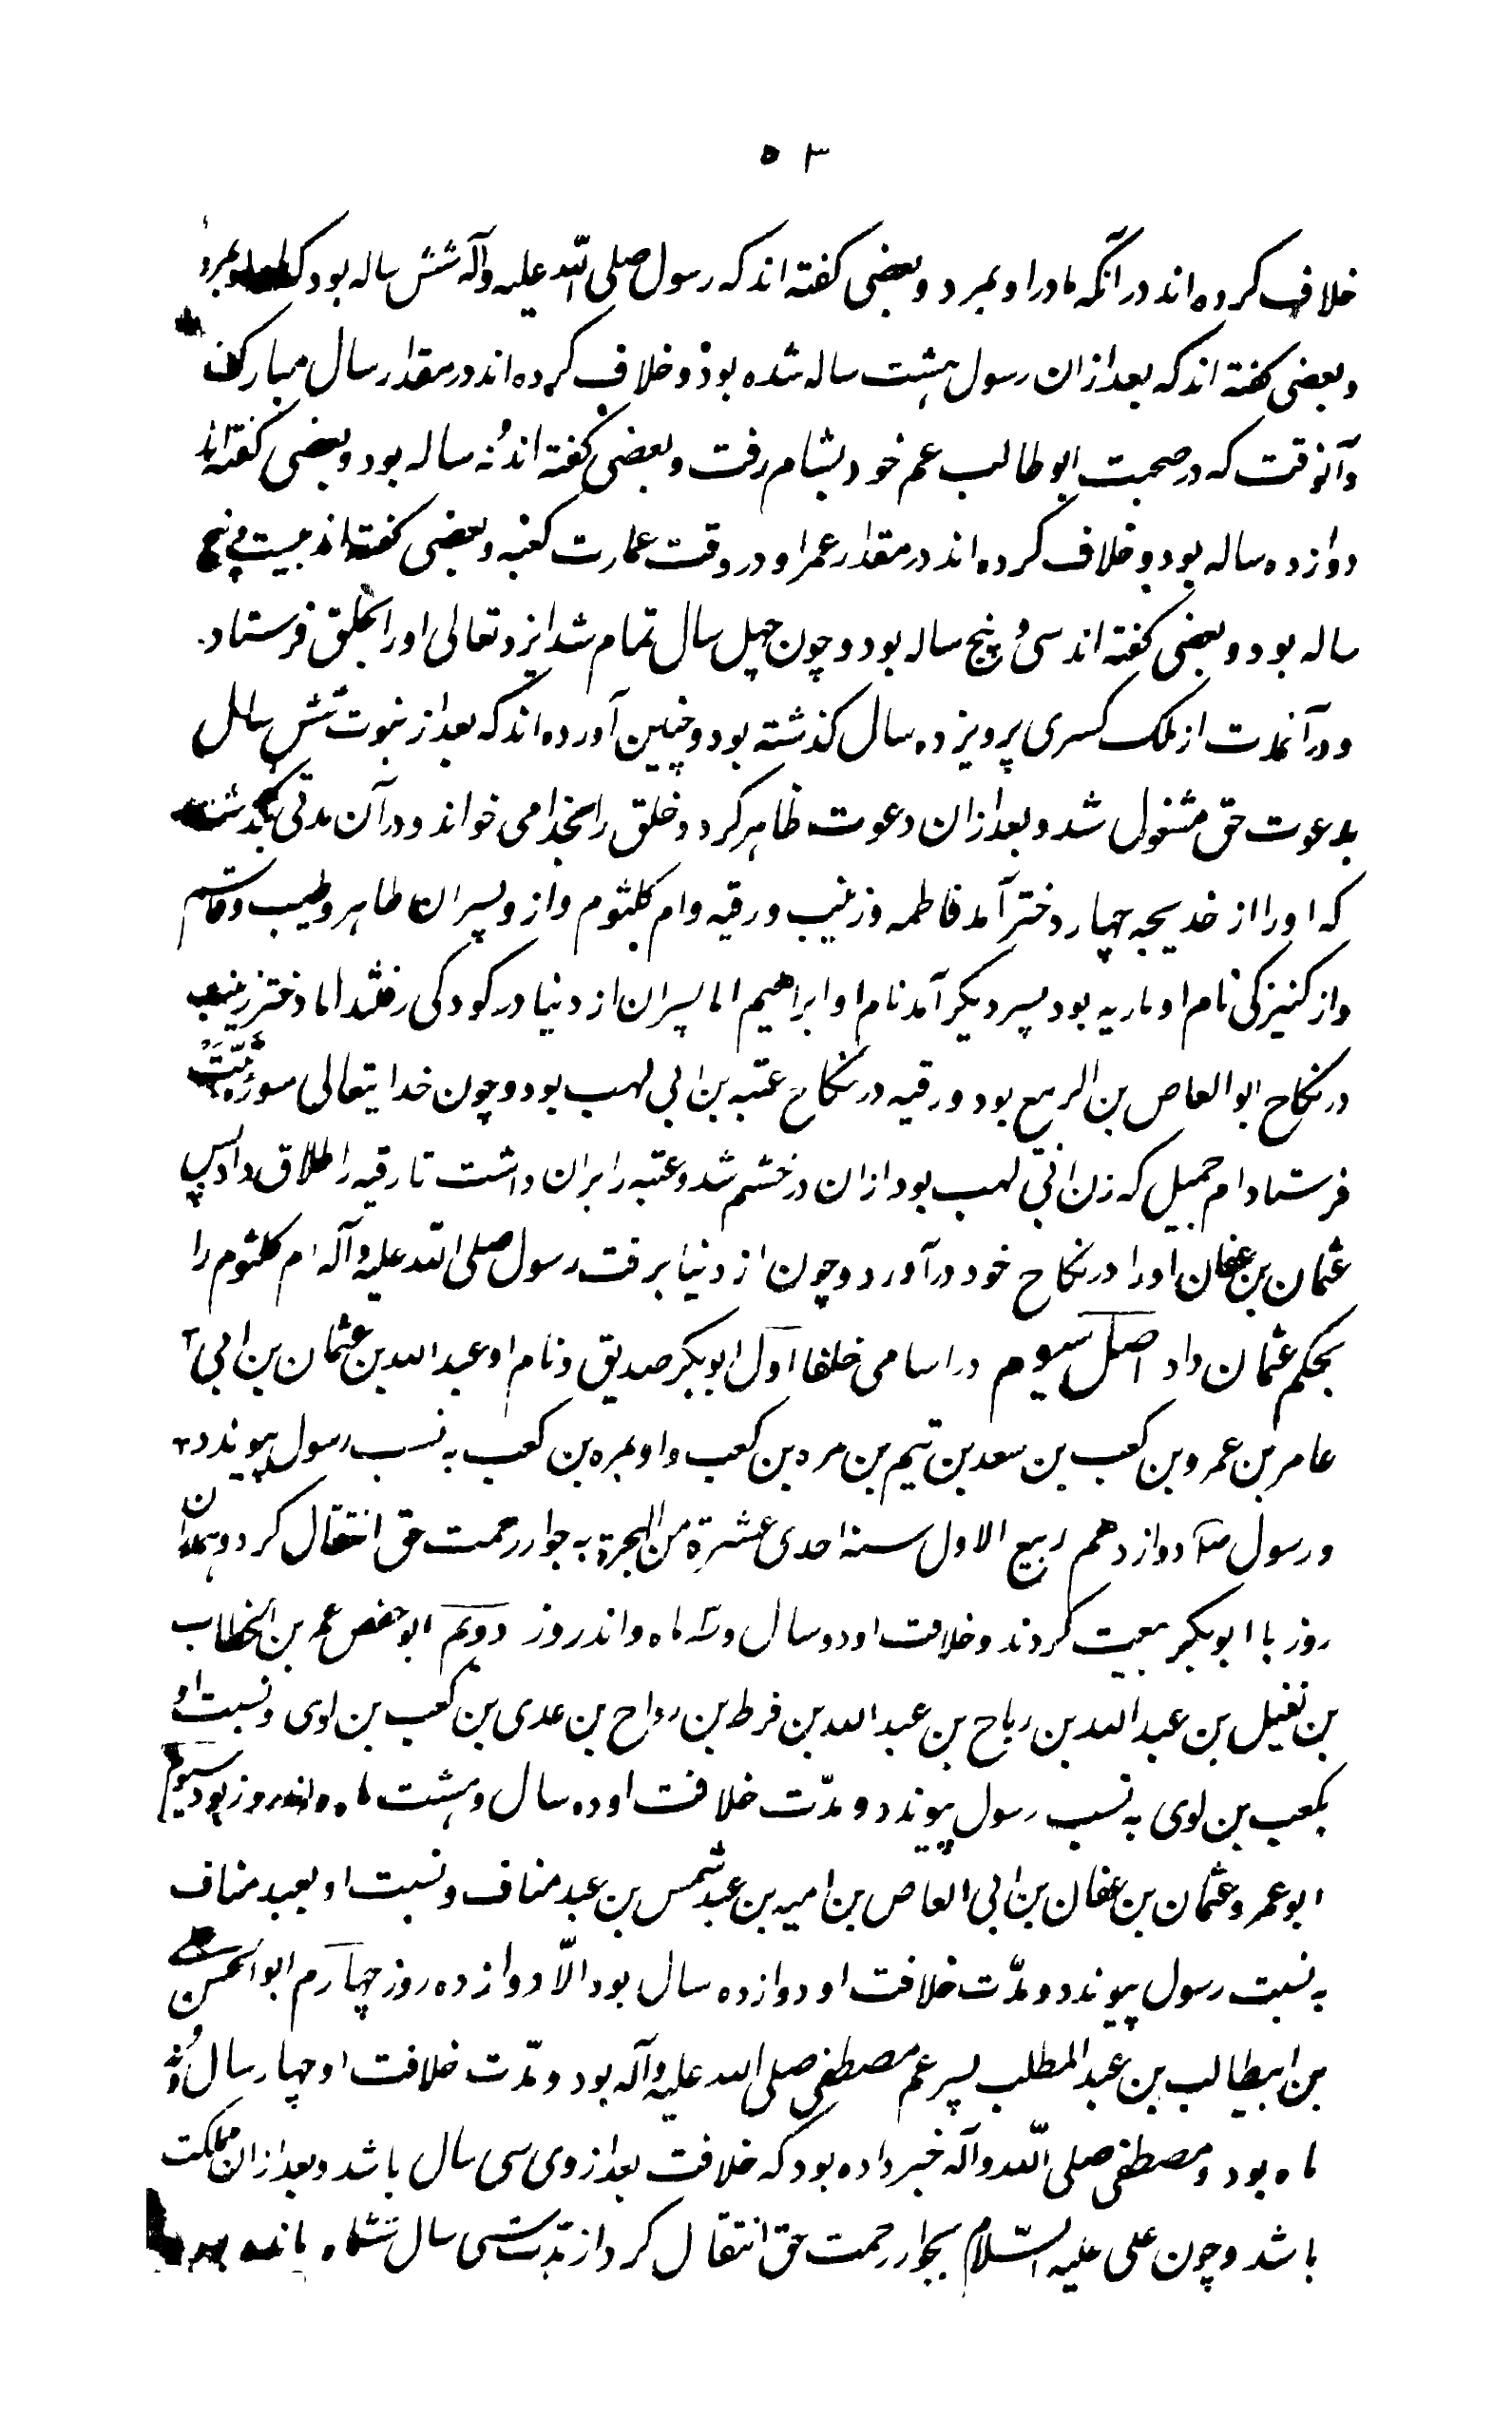 ۵۳
خلاف کرده‌اند در آنگه مادر او بمرد و بعضی کفته‌اند که رسول صلی الله علیه وآله شش ساله بود که بمرد
و بعضی کفته‌اند که بعد از ان رسول هشت ساله شده بود و خلاف کرده‌اند در مقدار سال مبارکش
وآنوقت که در صحبت ابوطالب عم خود بشام رفت و بعضی کفته‌اند نُه ساله بود و بعضی کفته‌اند
دوازده ساله بود و خلاف کرده‌اند در مقدار عمر او در وقت عمارت کعبه و بعضی کفته‌اند بیست و پنج
ساله بود و بعضی کفته‌اند سی و پنج ساله بود و چون چهل سال تمام شد ایزد تعالی او را بخلق فرستاد
و در آنمدت از ملک کسری پرویز ده سال کذشته بود و چنین آورده‌اند که بعد از نبوت شش سال
بدعوت حق مشغول شد و بعد از ان دعوت ظاهر کرد و خلق را بخدا می خواند و در آن مدتی بکذشت
که او را از خدیجه چهار دختر آمد فاطمه و زینب و رقیه و ام کلثوم و از و پسران طاهر و طیب و قاسم
و از کنیزکی نام او ماریه بود پسر دیکر آمد نام او ابراهیم اما پسران از دنیا در کودکی رفتند اما دختر زینب
در نکاح ابوالعاص بن الربیع بود و رقیه در نکاح عتبه بن ابی لهب بود و چون خدایتعالی سوره تبّت
فرستاد ام جمیل که زن ابی لهب بود از ان در خشم شد و عتبه را بران داشت تا رقیه را طلاق داد پس
عثمان بن عفان او را در نکاح خود در آورد و چون از دنیا برفت رسول صلی الله علیه وآله ام کلثوم را
بحکم عثمان داد اصل سیوم در اسامی خلفا اول ابوبکر صدیق و نام او عبدالله بن عثمان بن ابی
عامر بن عمرو بن کعب بن سعد بن تیم بن مره بن کعب و او بمره بن کعب به نسب رسول پیوندد
و رسول دوازدهم ربیع الاول سنة احدی عشرة من الهجرة به جوار رحمت حق انتقال کرد و همدان
روز با ابوبکر بیعت کردند و خلافت او دو سال و سه ماه و اند روز دویم ابوحفص عمر بن الخطاب
بن نفیل بن عبدالله بن ریاح بن عبدالله بن فرط بن رواح بن عدی بن کعب بن لوی و نسبت او
بکعب بن لوی به نسب رسول پیوندد و مدّت خلافت او ده سال و هشت ماه و اند روز بود سیوم
ابوعمرو عثمان بن عفان بن ابی العاص بن امیه بن عبدشمس بن عبد مناف و نسبت او بعبد مناف
به نسبت رسول پیوندد و مدّت خلافت او دوازده سال بود الّا دوازده روز چهارم ابوالحسن علی
بن ابیطالب بن عبدالمطلب پسر عم مصطفی صلی الله علیه وآله بود و مدّت خلافت او چهار سال و نُه
ماه بود و مصطفی صلی الله وآله خبر داده بود که خلافت بعد از وی سی سال باشد و بعد از ان مملکت
باشد و چون علی علیه السّلام بجوار رحمت حق انتقال کرد از مدّت سی سال ششماه مانده بود